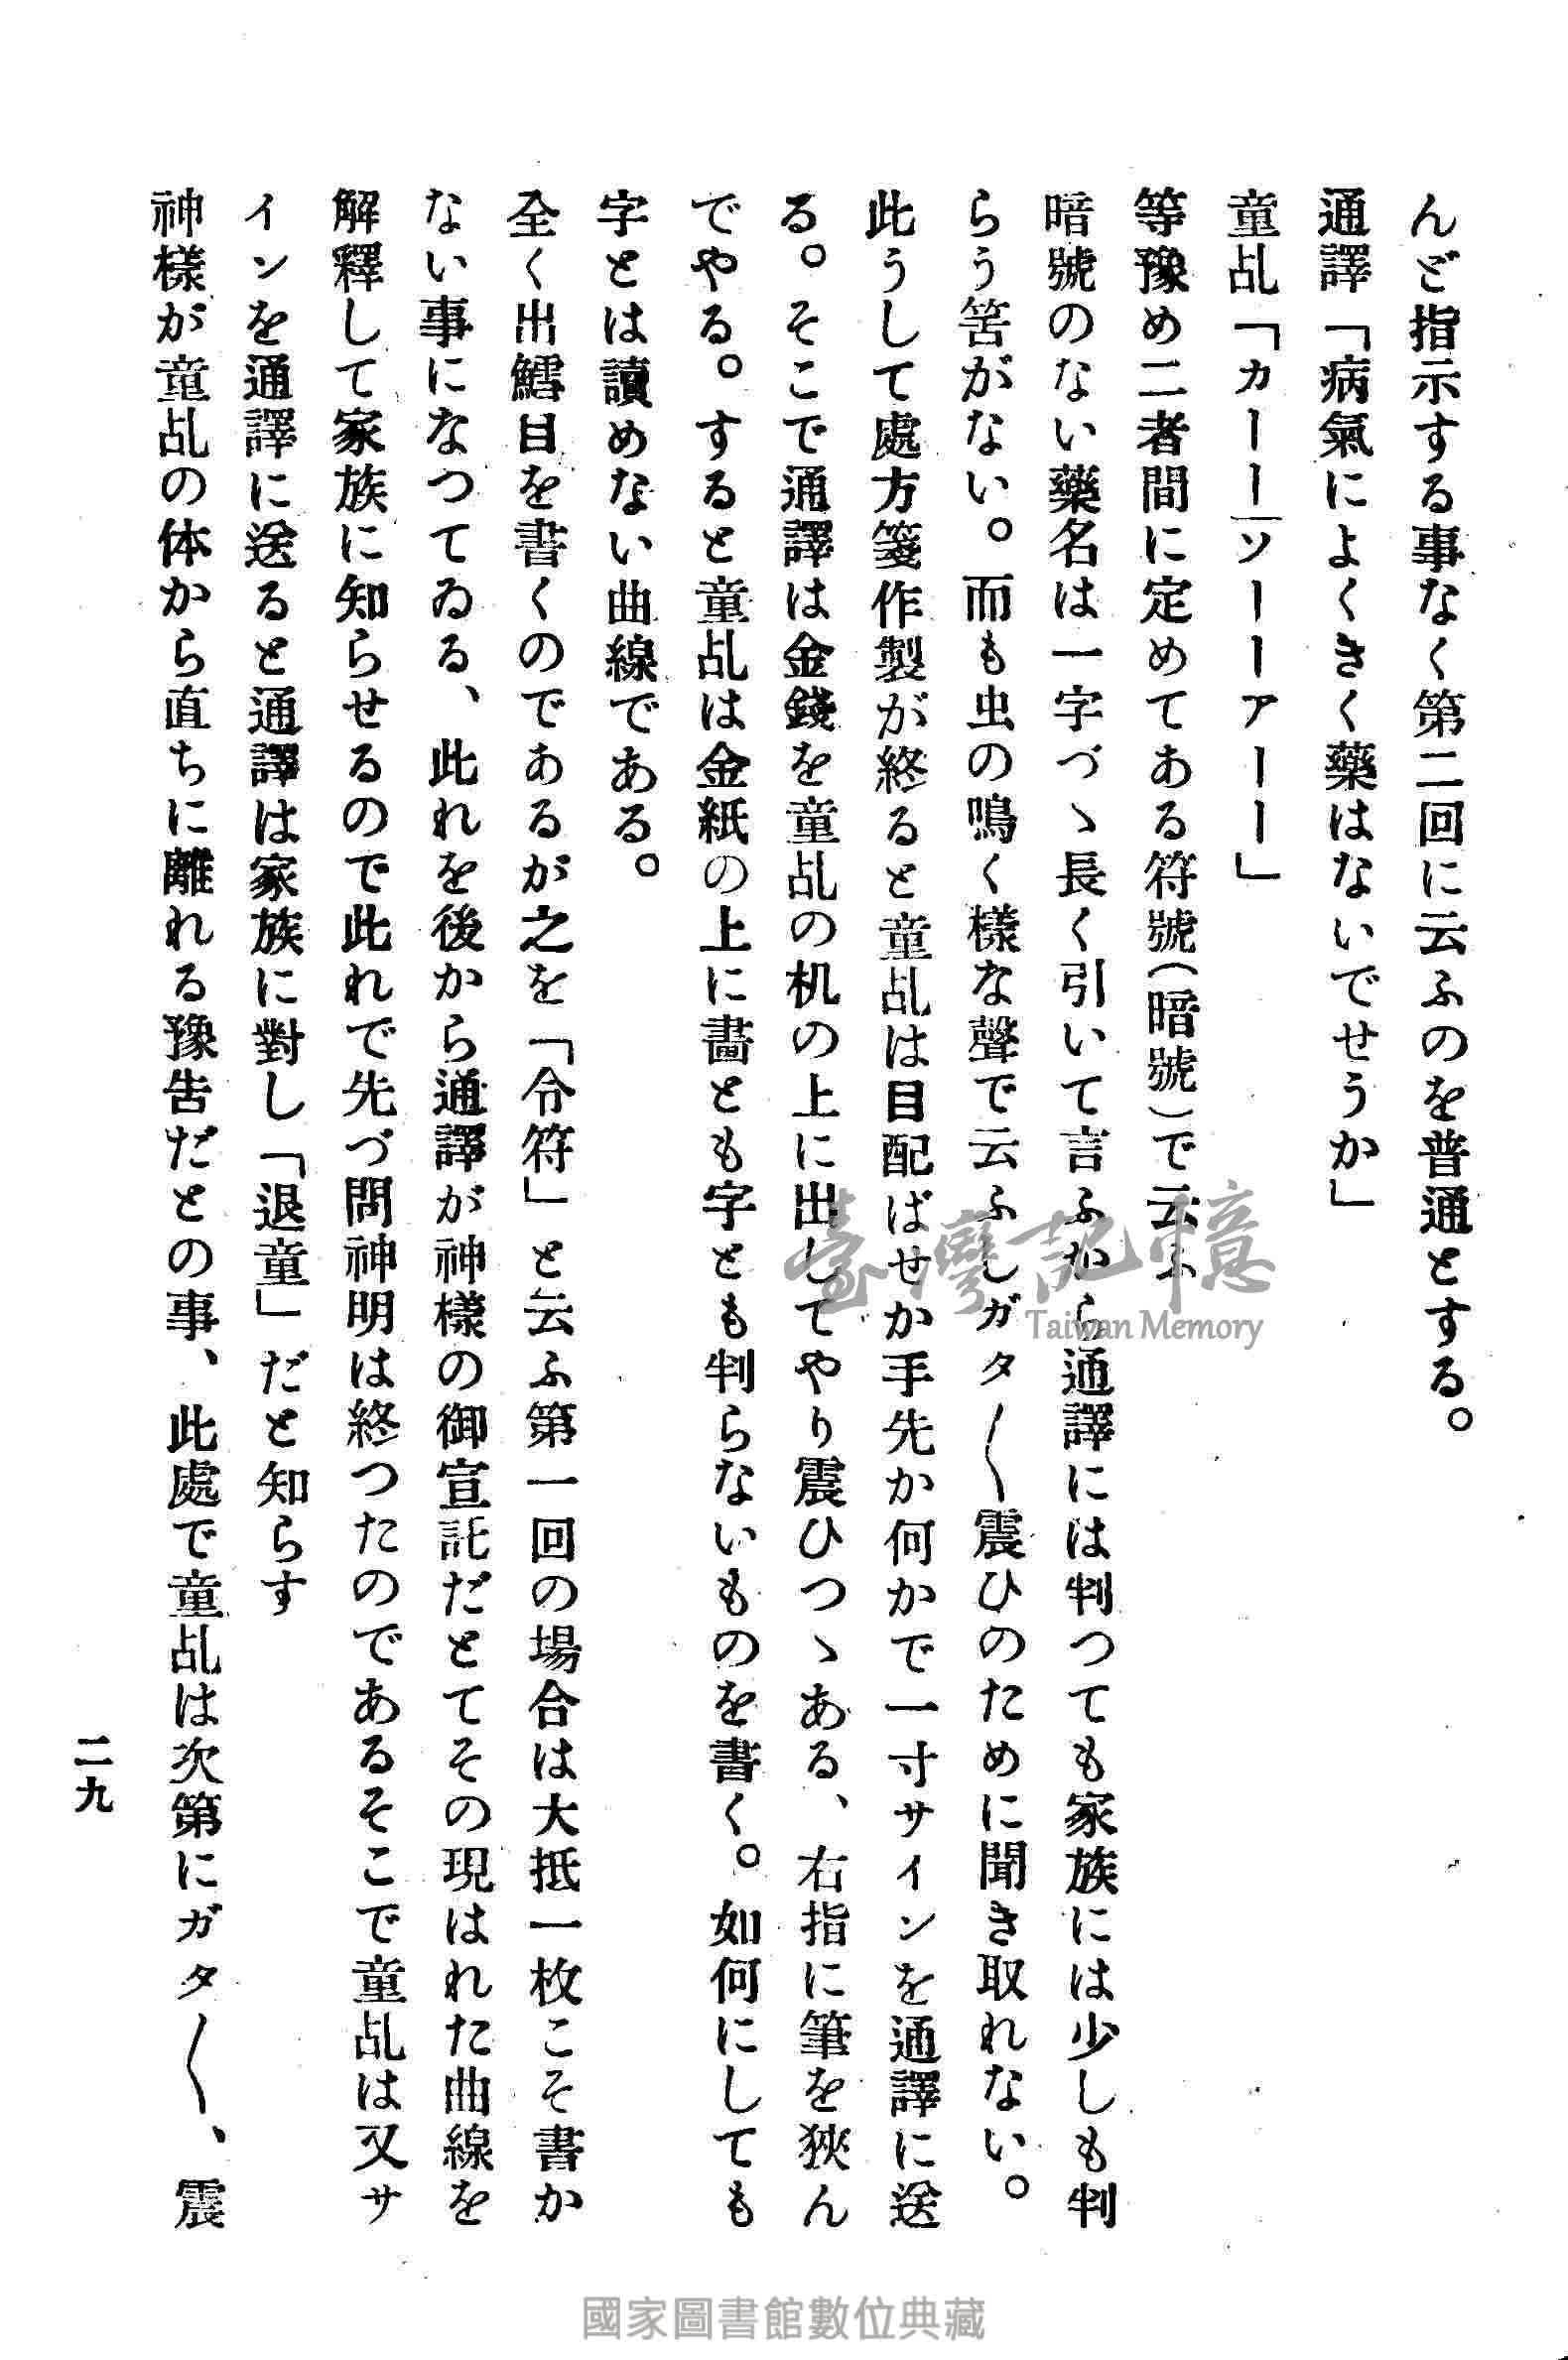 んど指示する事なく第二回に云ふのを普通とする。
通譯「病氣によくきく藥はないでせうか」
童乩「カーー|ソーーアーー」
等豫め二者間に定めてある符號(暗號)で云ふ
暗號のない藥名は一字づゝ長く引いて言ふから通譯には判つても家族には少しも判
らう筈がない。而も虫の鳴く樣な聲で云ふしガタ〱震ひのために聞き取れない。
此うして處方箋作製が終ると童乩は目配ばせか手先か何かで一寸サインを通譯に送
る。そこで通譯は金錢を童乩の机の上に出してやり震ひつゝある、右指に筆を狹ん
でやる。すると童乩は金紙の上に畵とも字とも判らないものを書く。如何にしても
字とは讀めない曲線である。
全く出鱈目を書くのであるが之を「令符」と云ふ第一回の場合は大抵一枚こそ書か
ない事になつてゐる、此れを後から通譯が神樣の御宣託だとてその現はれた曲線を
解釋して家族に知らせるので此れで先づ問神明は終つたのであるそこで童乩は又サ
インを通譯に送ると通譯は家族に對し「退童」だと知らす
神樣が童乩の体から直ちに離れる豫告だとの事、此處で童乩は次第にガタ〱、震
二九
臺灣記憶
Taiwan Memory
國家圖書館數位典藏